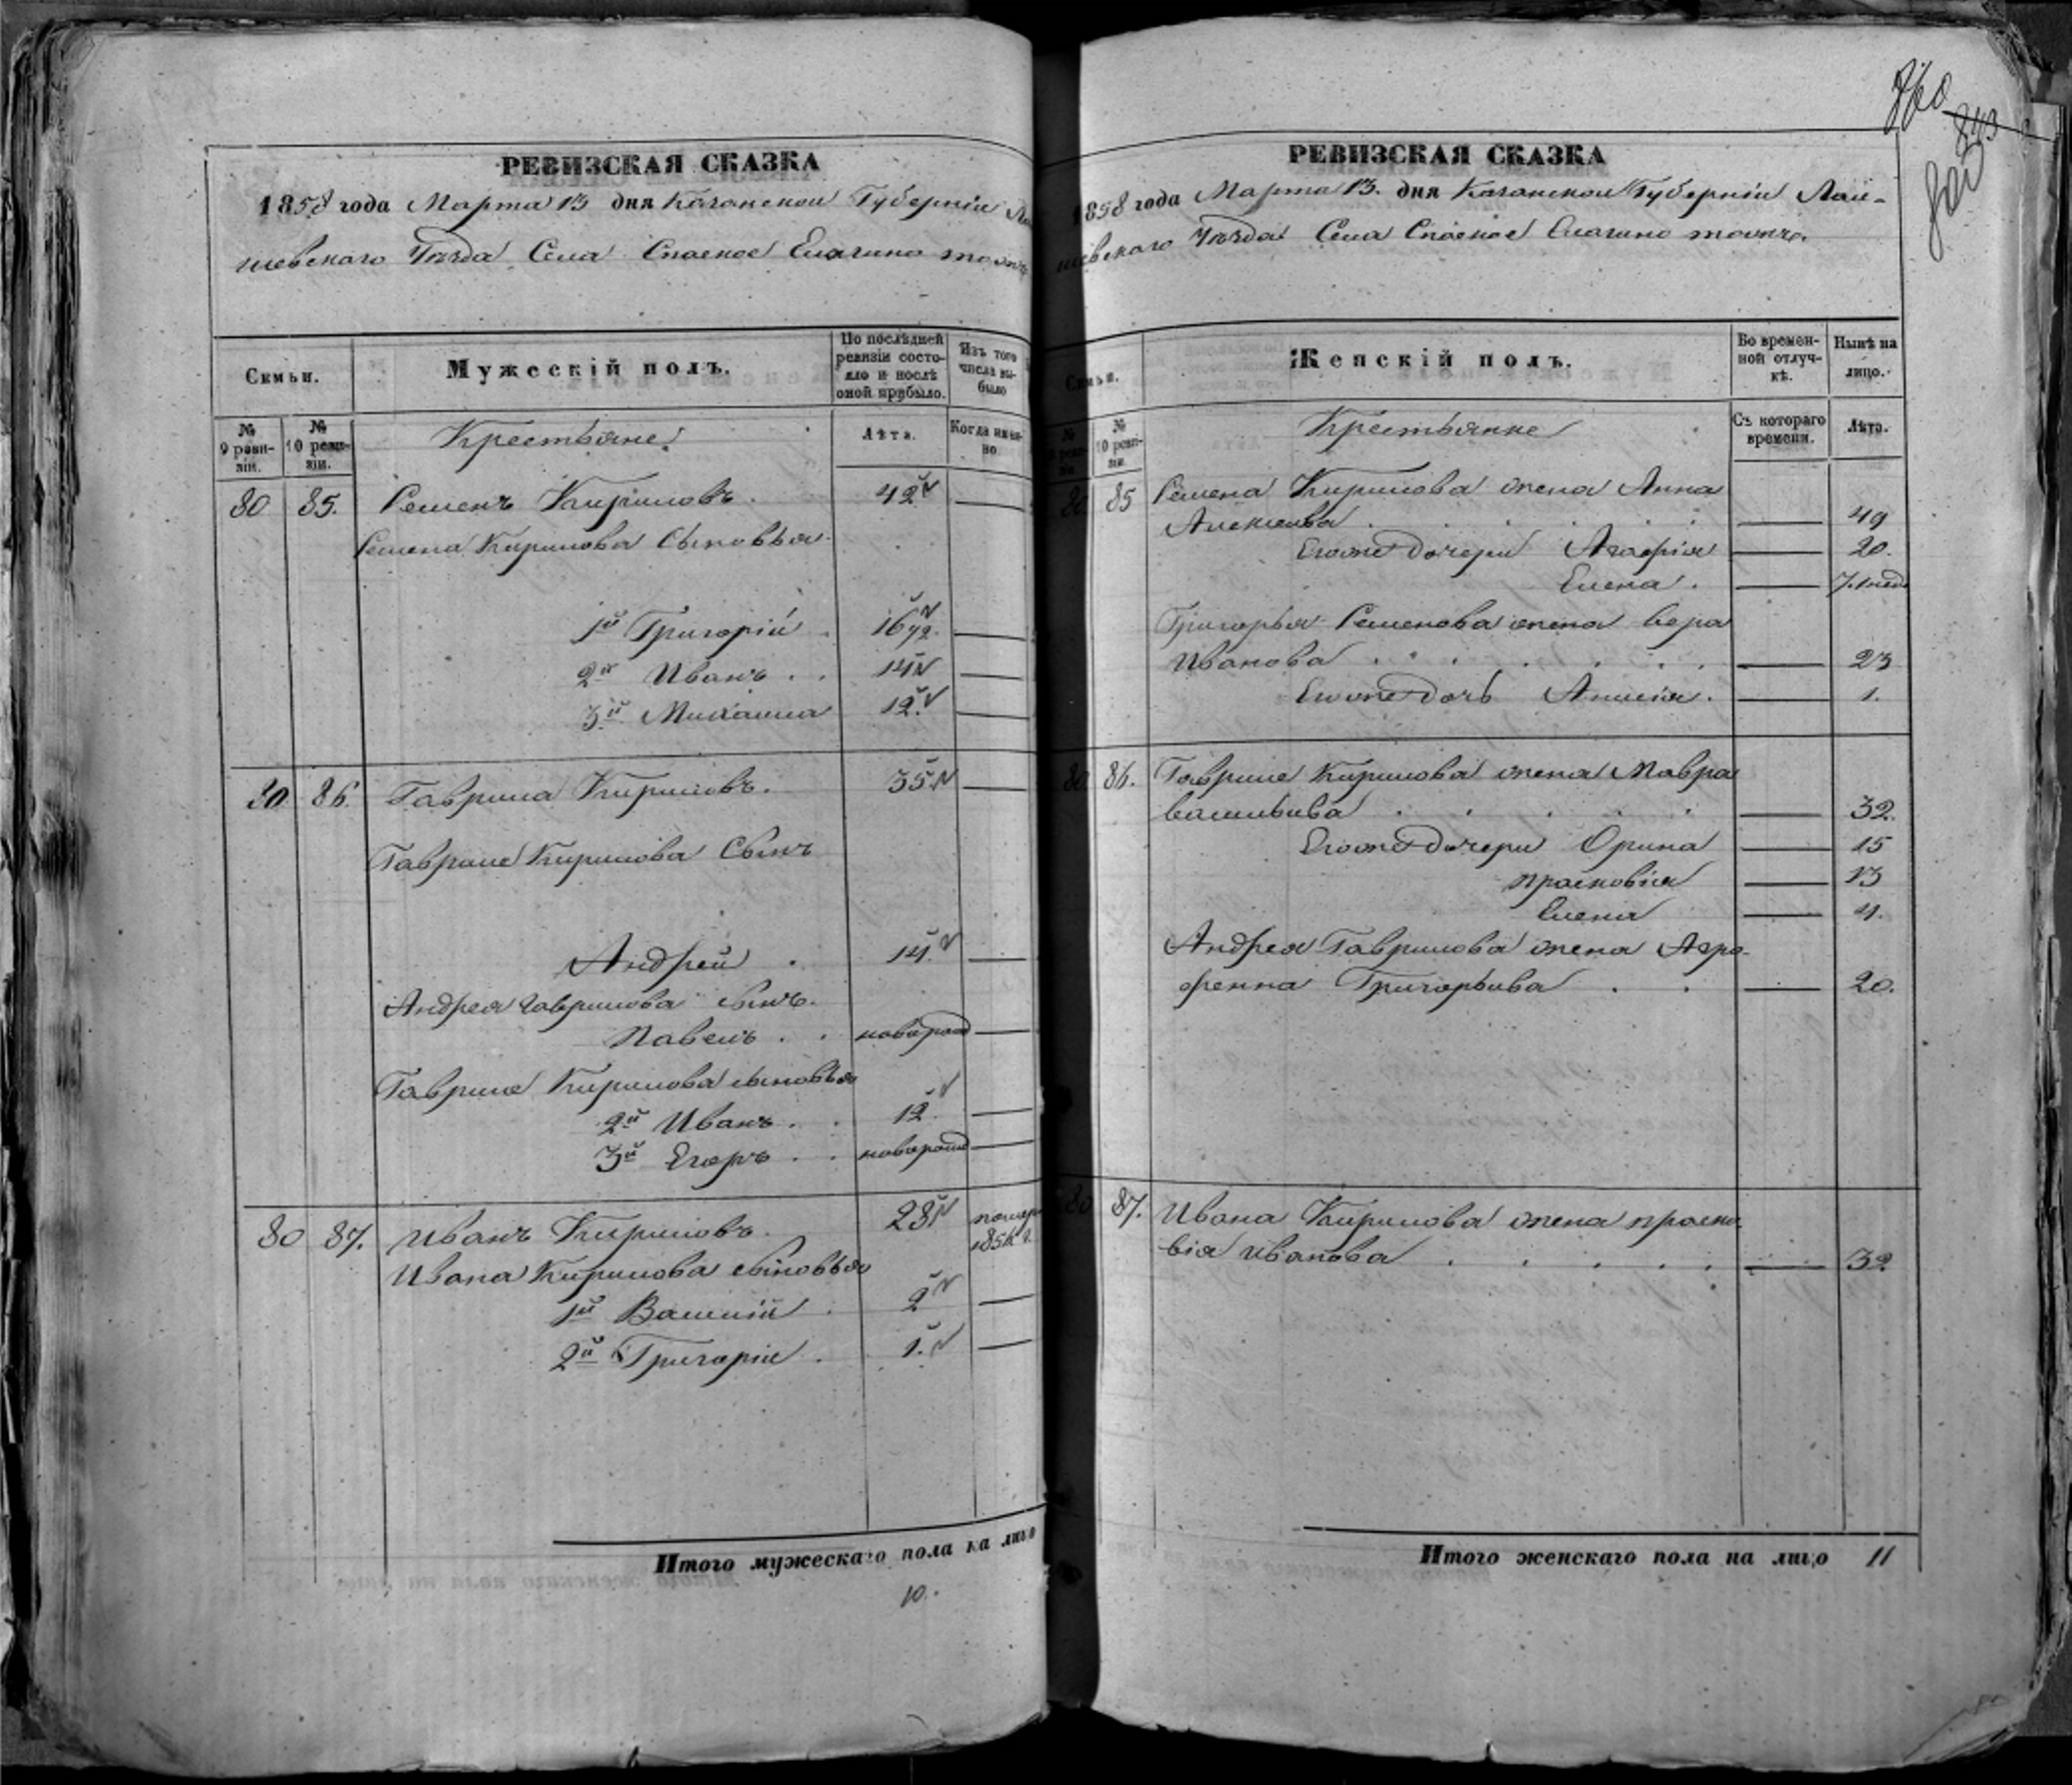 РЕВИЗСКАЯ СКАЗКА
1858 года Марта 13 дня Казанской Губерніи Ла
ишевскаго Уѣзда Села Спаское Елагино тожъ
Семьи.
Мужескій полъ.
По послѣдней ревизіи состояло и послѣ оной прибыло.
Изъ того числа выбыло
№ 9 ревизіи.
№ 10 ревизіи.
Крестьяне
Лѣта.
Когда именно
80 85. Семенъ Кириловъ. 42
Семена Кирилова Сыновья
1й Григорій 16 1/2
2й Иванъ 14
3й Михаила 12
80 86. Гаврила Кириловъ. 35
Гаврилы Кирилова Сынъ
Андрей 14
Андрея Гаврилова сынъ.
Павелъ новорожд
Гаврилы Кирилова сыновья
2й Иванъ 12.
3й Егоръ новорожд
80 87. Иванъ Кириловъ. 28 помер
185 г.
Ивана Кирилова сыновья
1й Василий 2
2й Григорій 1.
Итого мужескаго пола на лицо
10.
860
843
РЕВИЗСКАЯ СКАЗКА
1858 года Марта 13. дня Казанской Губерніи Лаи-
шевскаго Уѣзда Села Спаское Елагино тожъ.
Семьи.
Женскій полъ.
Во временной отлучкѣ.
Нынѣ на лицо.
№ 10 ревизіи
Крестьянке
Съ котораго времени.
Лѣта.
80 85 Семена Кирилова жена Анна
Алексеива 49
Еговые дочери Агафія 20.
Елена. 7. нед
Григорья Семенова жена Вера
Иванова 23
Еговые дочь Анисія. 1.
80 86. Гаврилы Кирилова жена Мавра
Василъива 32.
Еговые дочери Орина 15
Прасковія 13
Елена 4.
Андрея Гаврилова жена Агра-
фенна Григорьива 20.
80 87. Ивана Кирилова жена Праско
вія Иванова 32
Итого женскаго пола на лицо 11